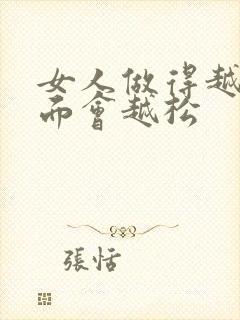 女人做得越
而会越松
張恬